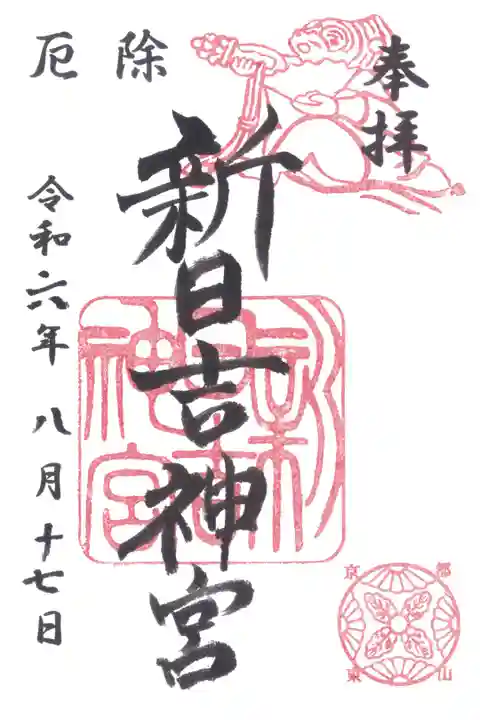 奉拝
除
厄
新日吉神宮
新日吉神宮
令和六年 八月十七日
京都
東山